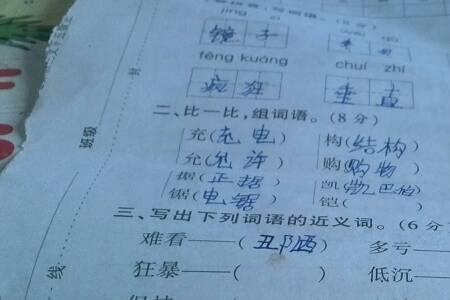 写词语。(8分)
镜 子
fēng kuáng chuí zhí
疯 狂 垂 直
二、比一比,组词语。(8分)
充(充电) 构(结构)
允(允许) 购(购物)
据(正据) 凯(凯巴伯)
锯(电锯) 铠( )
三、写出下列词语的近义词。(6分
难看——(丑陋) 多亏——(
狂暴——( ) 低沉——(
封
班级
线